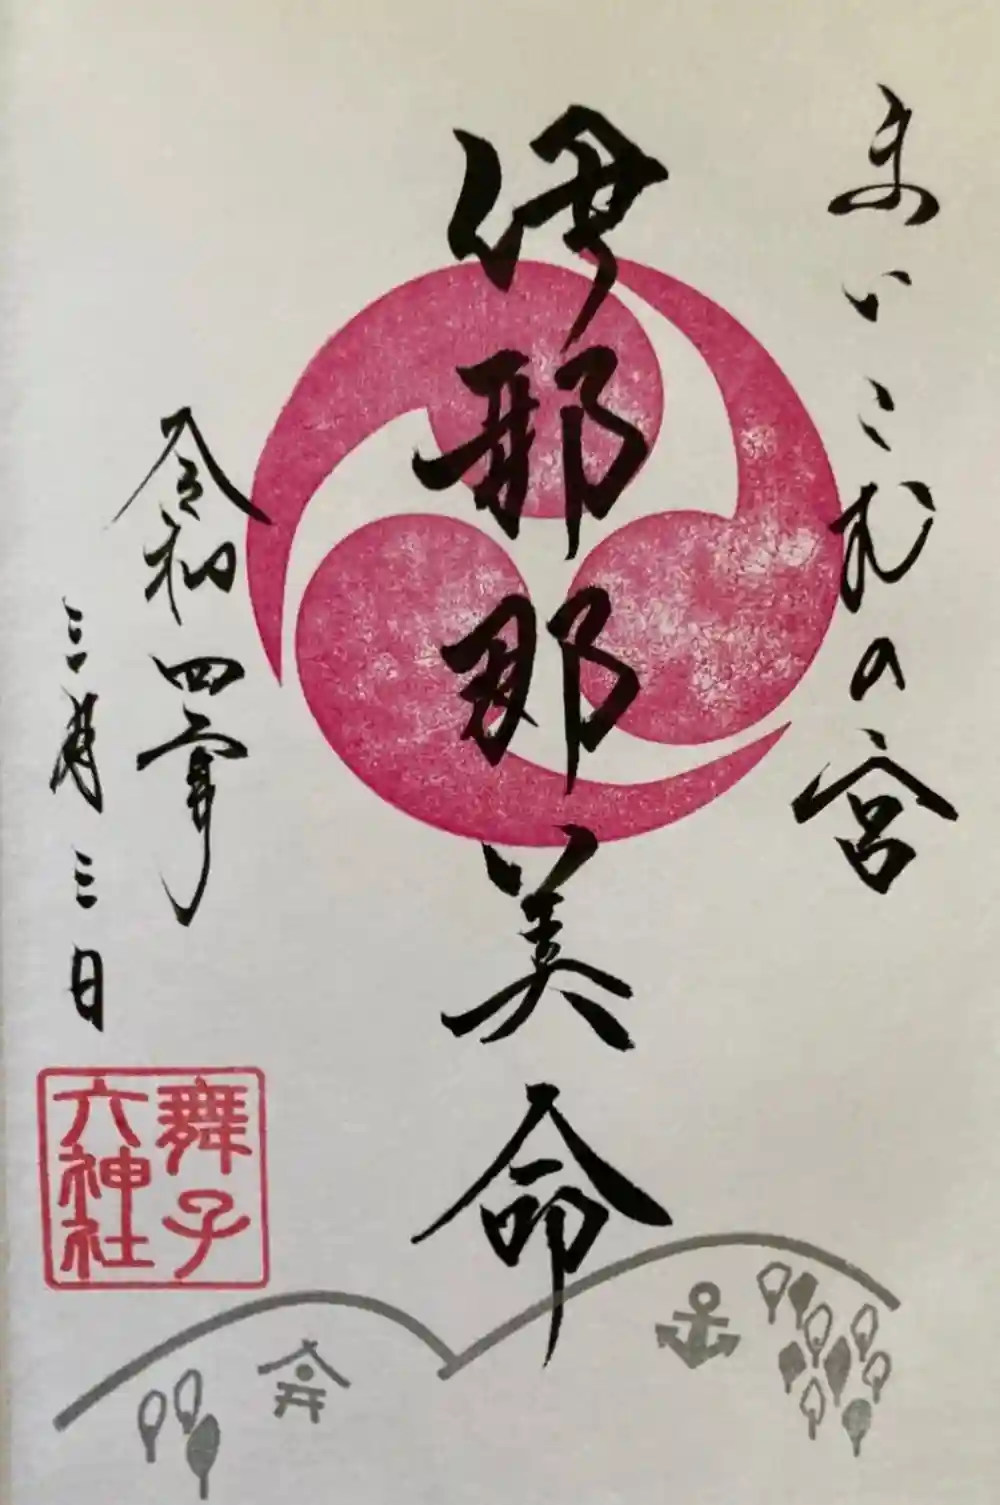 まいこむの宮
伊耶那美命
令和四年
三月三日
舞子
六神社